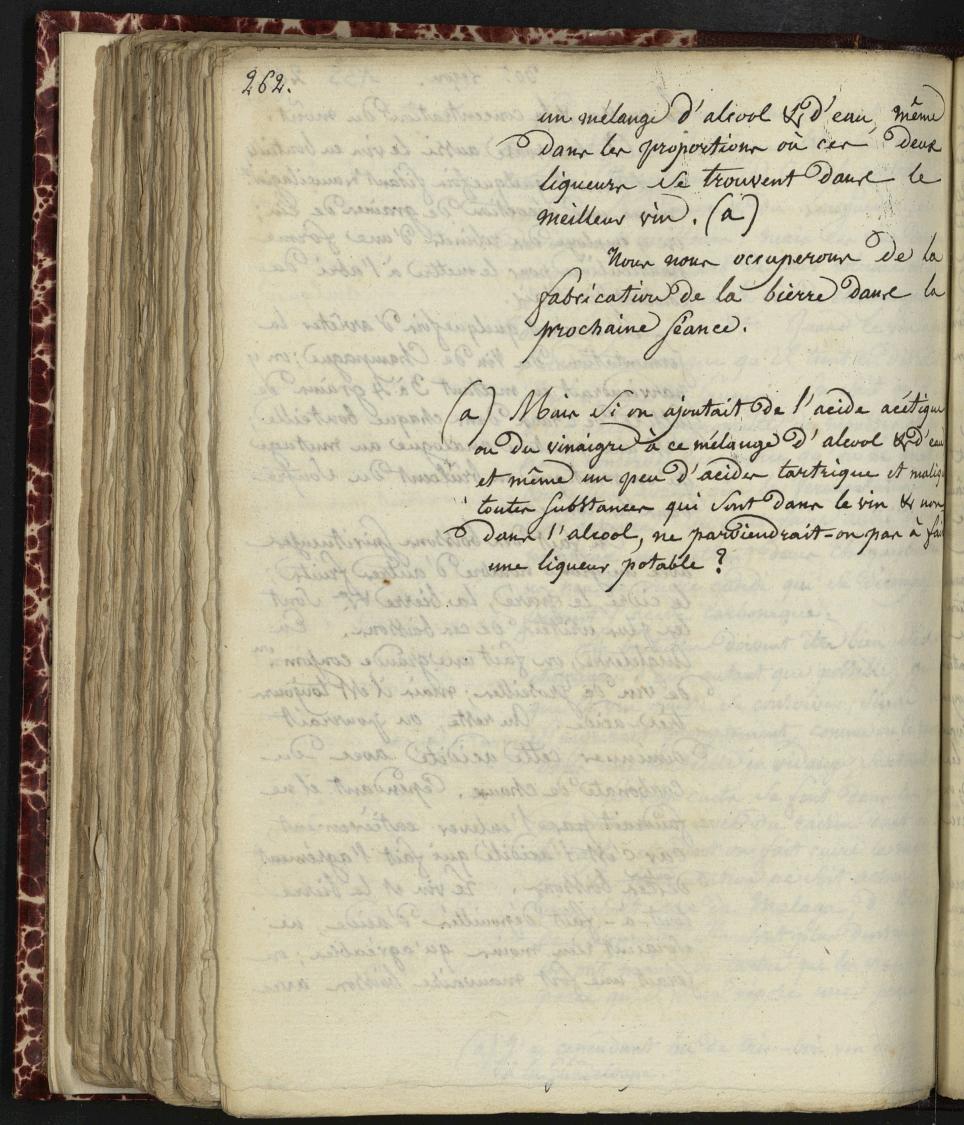 262.
un mélange d'alcool & d'eau, même
dans les proportions où ces deux
liqueurs se trouvent dans le
meilleur vin. (a)
Nous nous occuperons de la
fabrication de la bierre dans la
prochaine séance.
(a) Mais si on ajoutait de l'acide acétique
ou du vinaigre à ce mélange d'alcool & d'eau
et même un peu d'acides tartrique et maliq
toutes substances qui sont dans le vin & non
dans l'alcool, ne parviendrait-on pas à fai
une liqueur potable ?